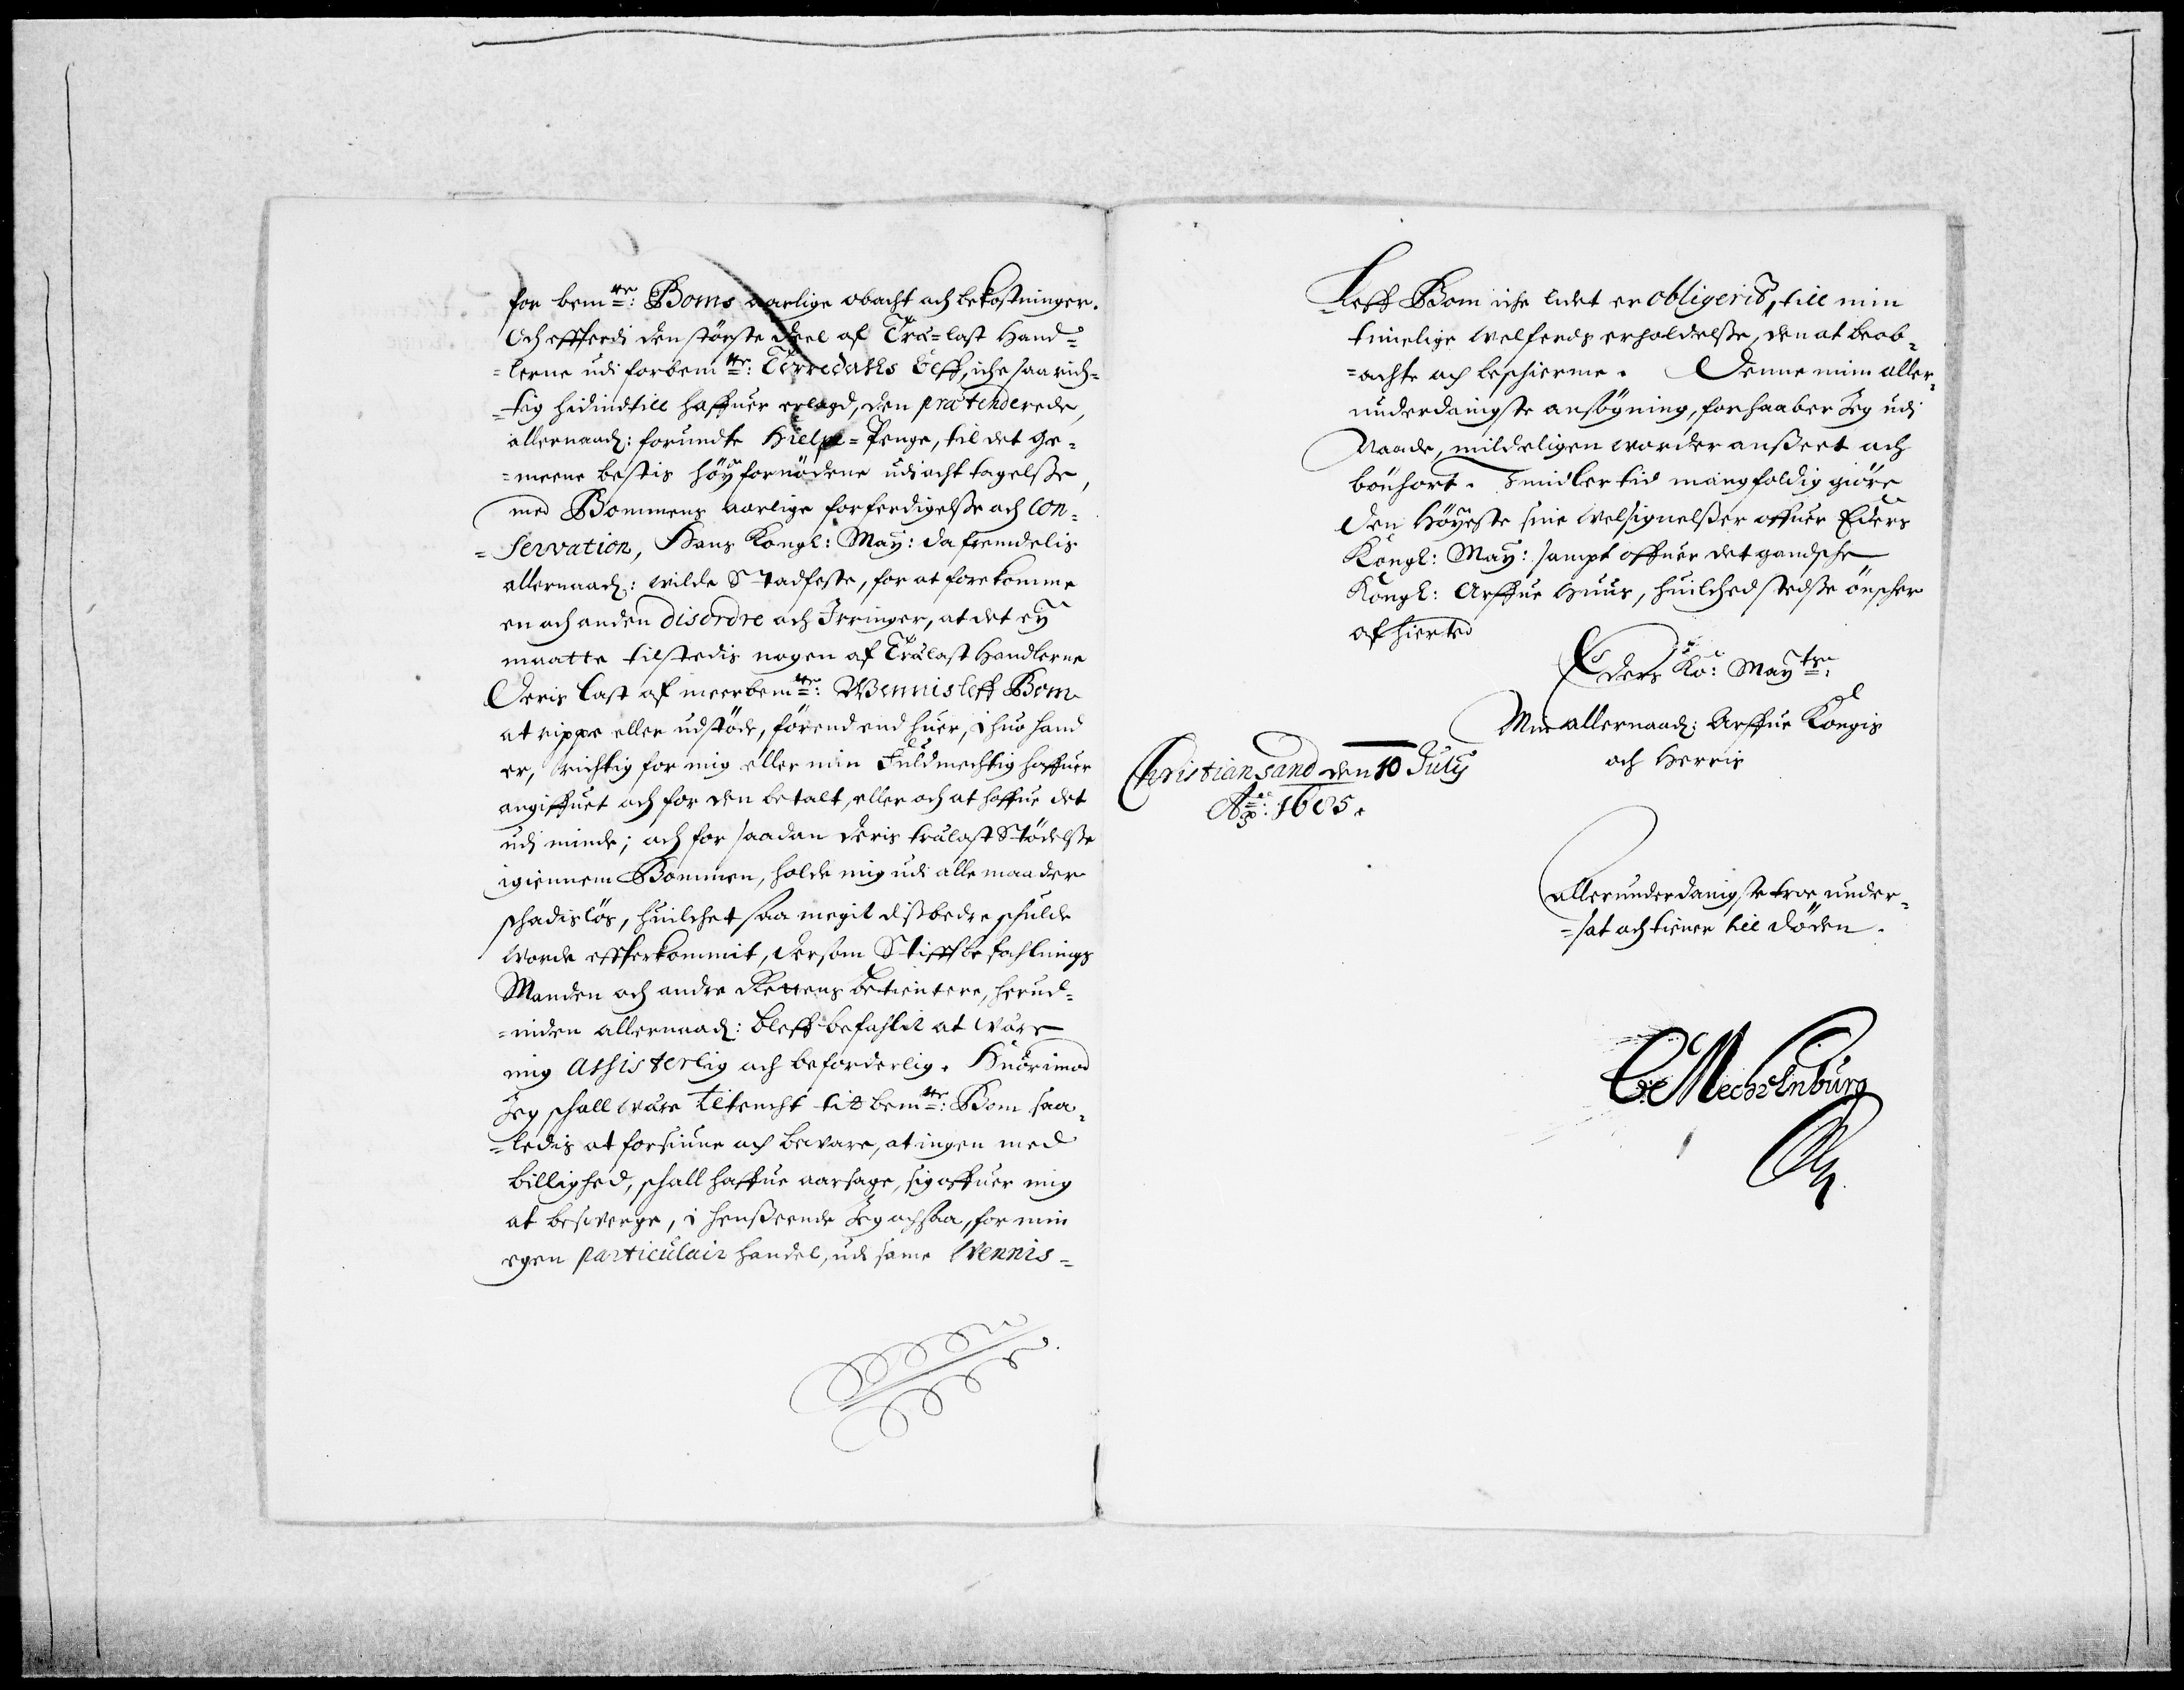 for bem:te Boms aarlige obacht och bekostninger.
Och effterdi den störste deel af Træ=last Hand=
=lerne udi forbem:te Torredahls Elff, iche saa rich=
=tig hidindtill haffuer erlagd, den prætenderede
allernaad: forundte Hielpe=Penge, til det Ge=
=meene bestis höyfornödene udi acht tagelsse,
med Bommens aarlige forferdigelsse och Con=
=servation, Hans Kongl: May: da fremdelis
allernaad: wilde Stadfeste, for at forekomme
en och anden disordre och Irringer, at det ey
maatte tilstedis nogen af Trælast Handlerne
Deris last af meerbem:te Wennisleff Bom
at rippe eller udstöde, förend end huer, i huo hand
er, richtig for mig eller min Fuldmechtig haffuer
angiffuet och for den betalt, eller och at haffue det
udi minde; och for saadan deris trælast Stödelsse
igiennem Bommen, holde mig udi alle maader
schadislös, huilchet saa megit disbedre schulde
worde effterkommit, dersom Stifftbefahlnings
Manden och andre Rettens betientere, herud=
=inden allernaad: bleff befahlit at være
mig assisterlig och beforderlig. Huorimod
Jeg schall være tiltencht tit bem:te Bom saa=
=ledis at forsiune och bevare, at ingen med
billighed, schall haffue aarsage, sig offuer mig
at besverge, i hensseende Jeg ochsaa, for min
egen particulair handel, udi same Wennis=
Leff Bom iche lidet er obligerid, till min
timelige welferds erholdelsse, den at beob=
=achte och beschierme. Denne min aller=
underdanigste ansögning, forhaaber Jeg udi
Naade, mildeligen worder ansseet och
bönhört. Imidlertid mangfoldig giöre
den Höyeste sine welsignelsser offuer Eders
Kongl: May: sampt offuer det gandsche
Kongl: Arffue Huus, huilched stedsse önscher
af hierted
Eders Ko: May:ts
Min allernaad: Arffue Kongis
och Herris
Christiansand den 10 July
Ao: 1685.
allerunderdanigste troe under=
=sat och tiener till döden.
C Mechlenburg